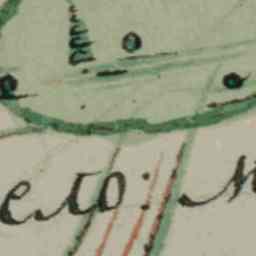 ело: м